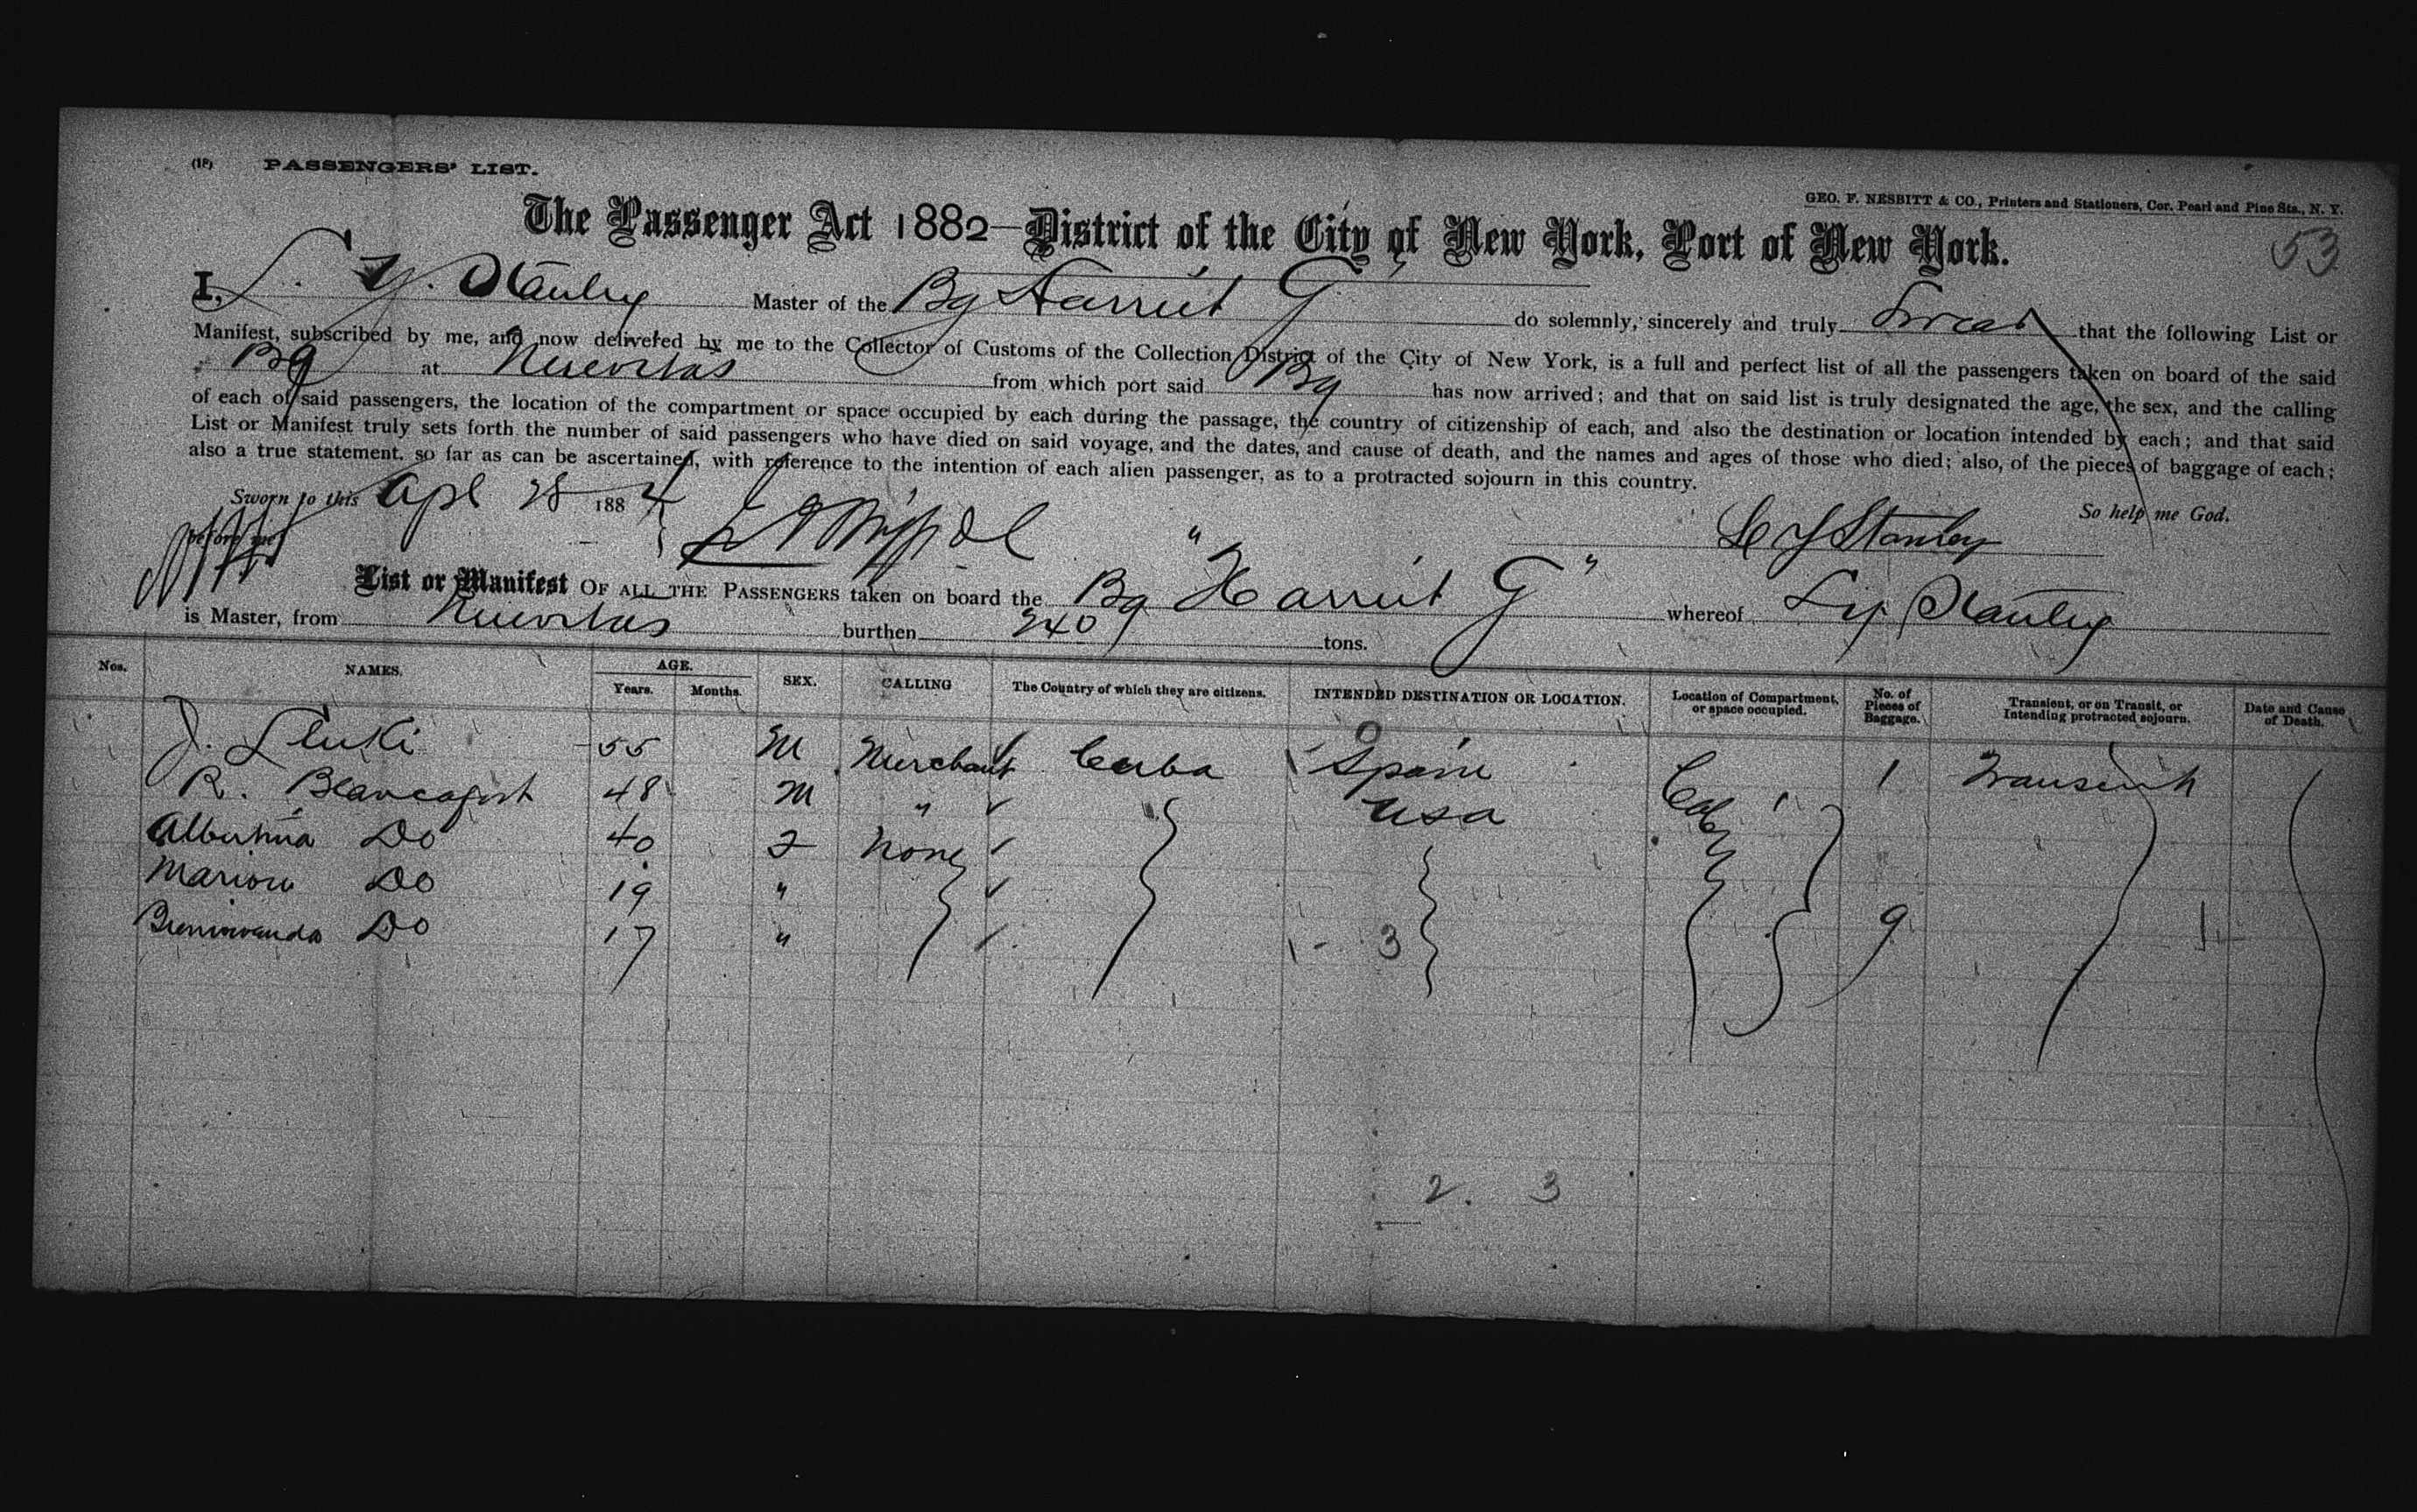 (18) PASSENGERS' LIST.
GEO. F. NESBITT & CO., Printers and Stationers, Cor. Pearl and Pine Sts., N. Y.
The Passenger Act 1882—District of the City of New York, Port of New York.
53
I, L. Y. Stanley Master of the Bg Harriet G do solemnly, sincerely and truly Swear that the following List or
Manifest, subscribed by me, and now delivered by me to the Collector of Customs of the Collection District of the City of New York, is a full and perfect list of all the passengers taken on board of the said
Bg at Nuevitas from which port said Bg has now arrived; and that on said list is truly designated the age, the sex, and the calling
of each of said passengers, the location of the compartment or space occupied by each during the passage, the country of citizenship of each, and also the destination or location intended by each; and that said
List or Manifest truly sets forth the number of said passengers who have died on said voyage, and the dates, and cause of death, and the names and ages of those who died; also, of the pieces of baggage of each;
also a true statement, so far as can be ascertained, with reference to the intention of each alien passenger, as to a protracted sojourn in this country.
Sworn to this Apl 28 1884
So help me God.
before me
L Y Stanley
List or Manifest OF ALL THE PASSENGERS taken on board the Bg "Harriet G" whereof L Y Stanley
is Master, from Nuevitas burthen 240 tons.
Nos. NAMES. AGE. Years. Months. SEX. CALLING The Country of which they are citizens. INTENDED DESTINATION OR LOCATION. Location of Compartment, or space occupied. No. of Pieces of Baggage. Transient, or on Transit, or Intending protracted sojourn. Date and Cause of Death.
J. 55 M Merchant Cuba Spain 1 Transient
R. 48 M " USA
Do 40 None
Do 19 "
Do 17 " 3 9
2. 3